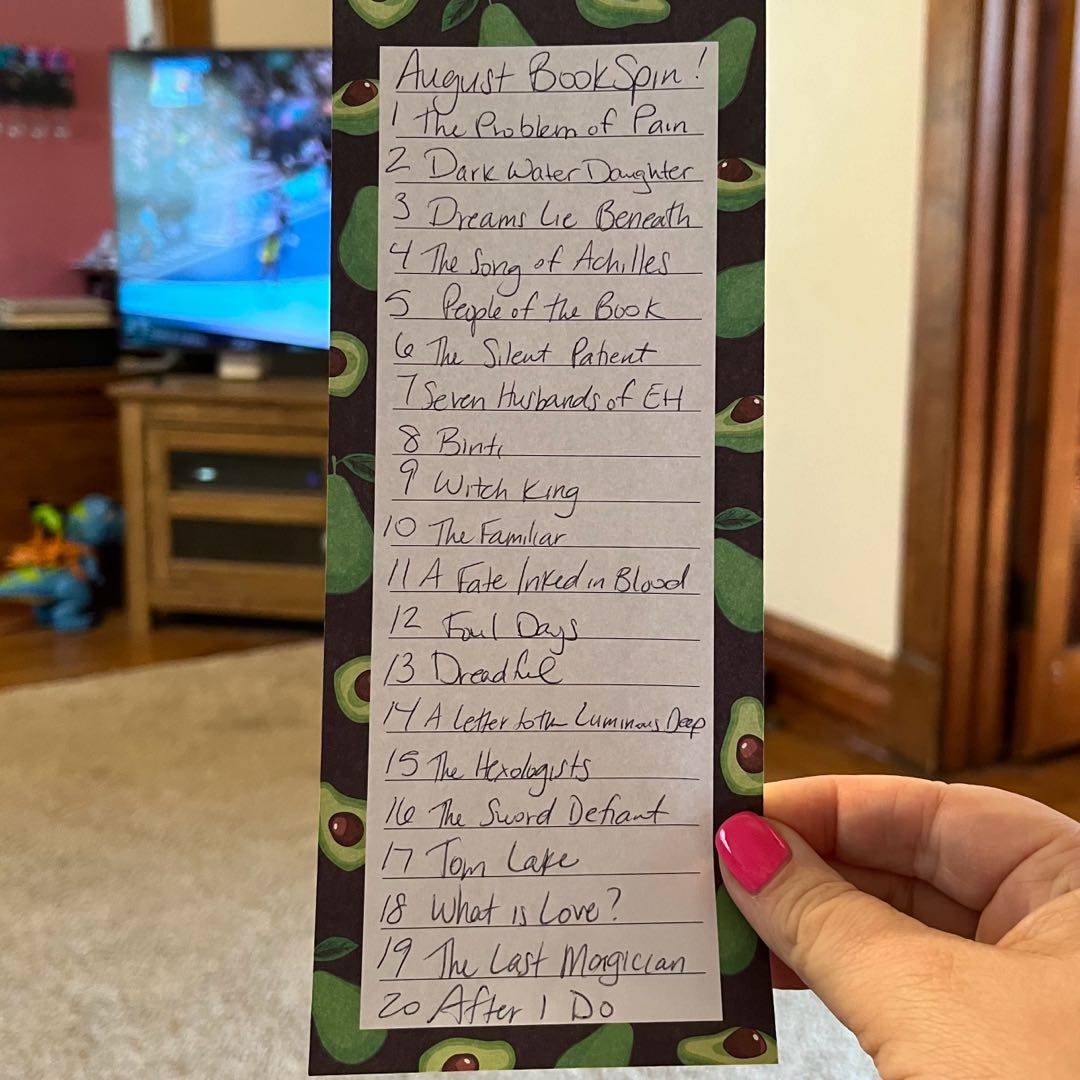 August BookSpin!
1 The Problem of Pain
2 Dark Water Daughter
3 Dreams Lie Beneath
4 The Song of Achilles
5 People of the Book
6 The Silent Patient
7 Seven Husbands of EH
8 Binti
9 Witch King
10 The Familiar
11 A Fate Inked in Blood
12 Foul Days
13 Dreadful
14 A Letter to the Luminous Deep
15 The Hexologists
16 The Sword Defiant
17 Tom Lake
18 What is Love?
19 The Last Magician
20 After I Do